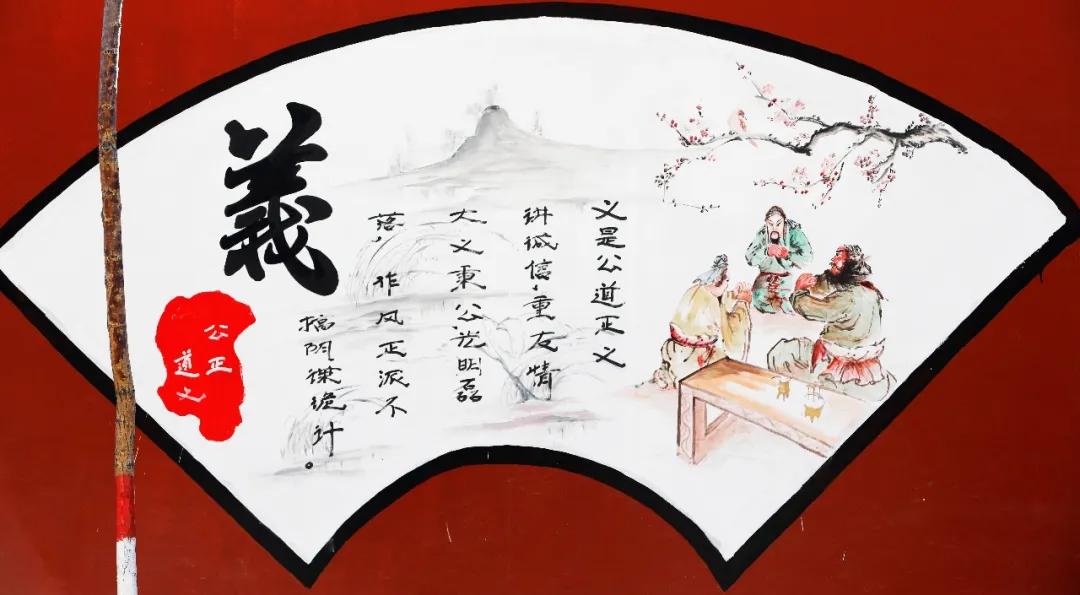 义是公道正义
讲诚信,重友情
大义秉公光明磊
落,作风正派不
搞阴谋诡计。
義
公正
道义